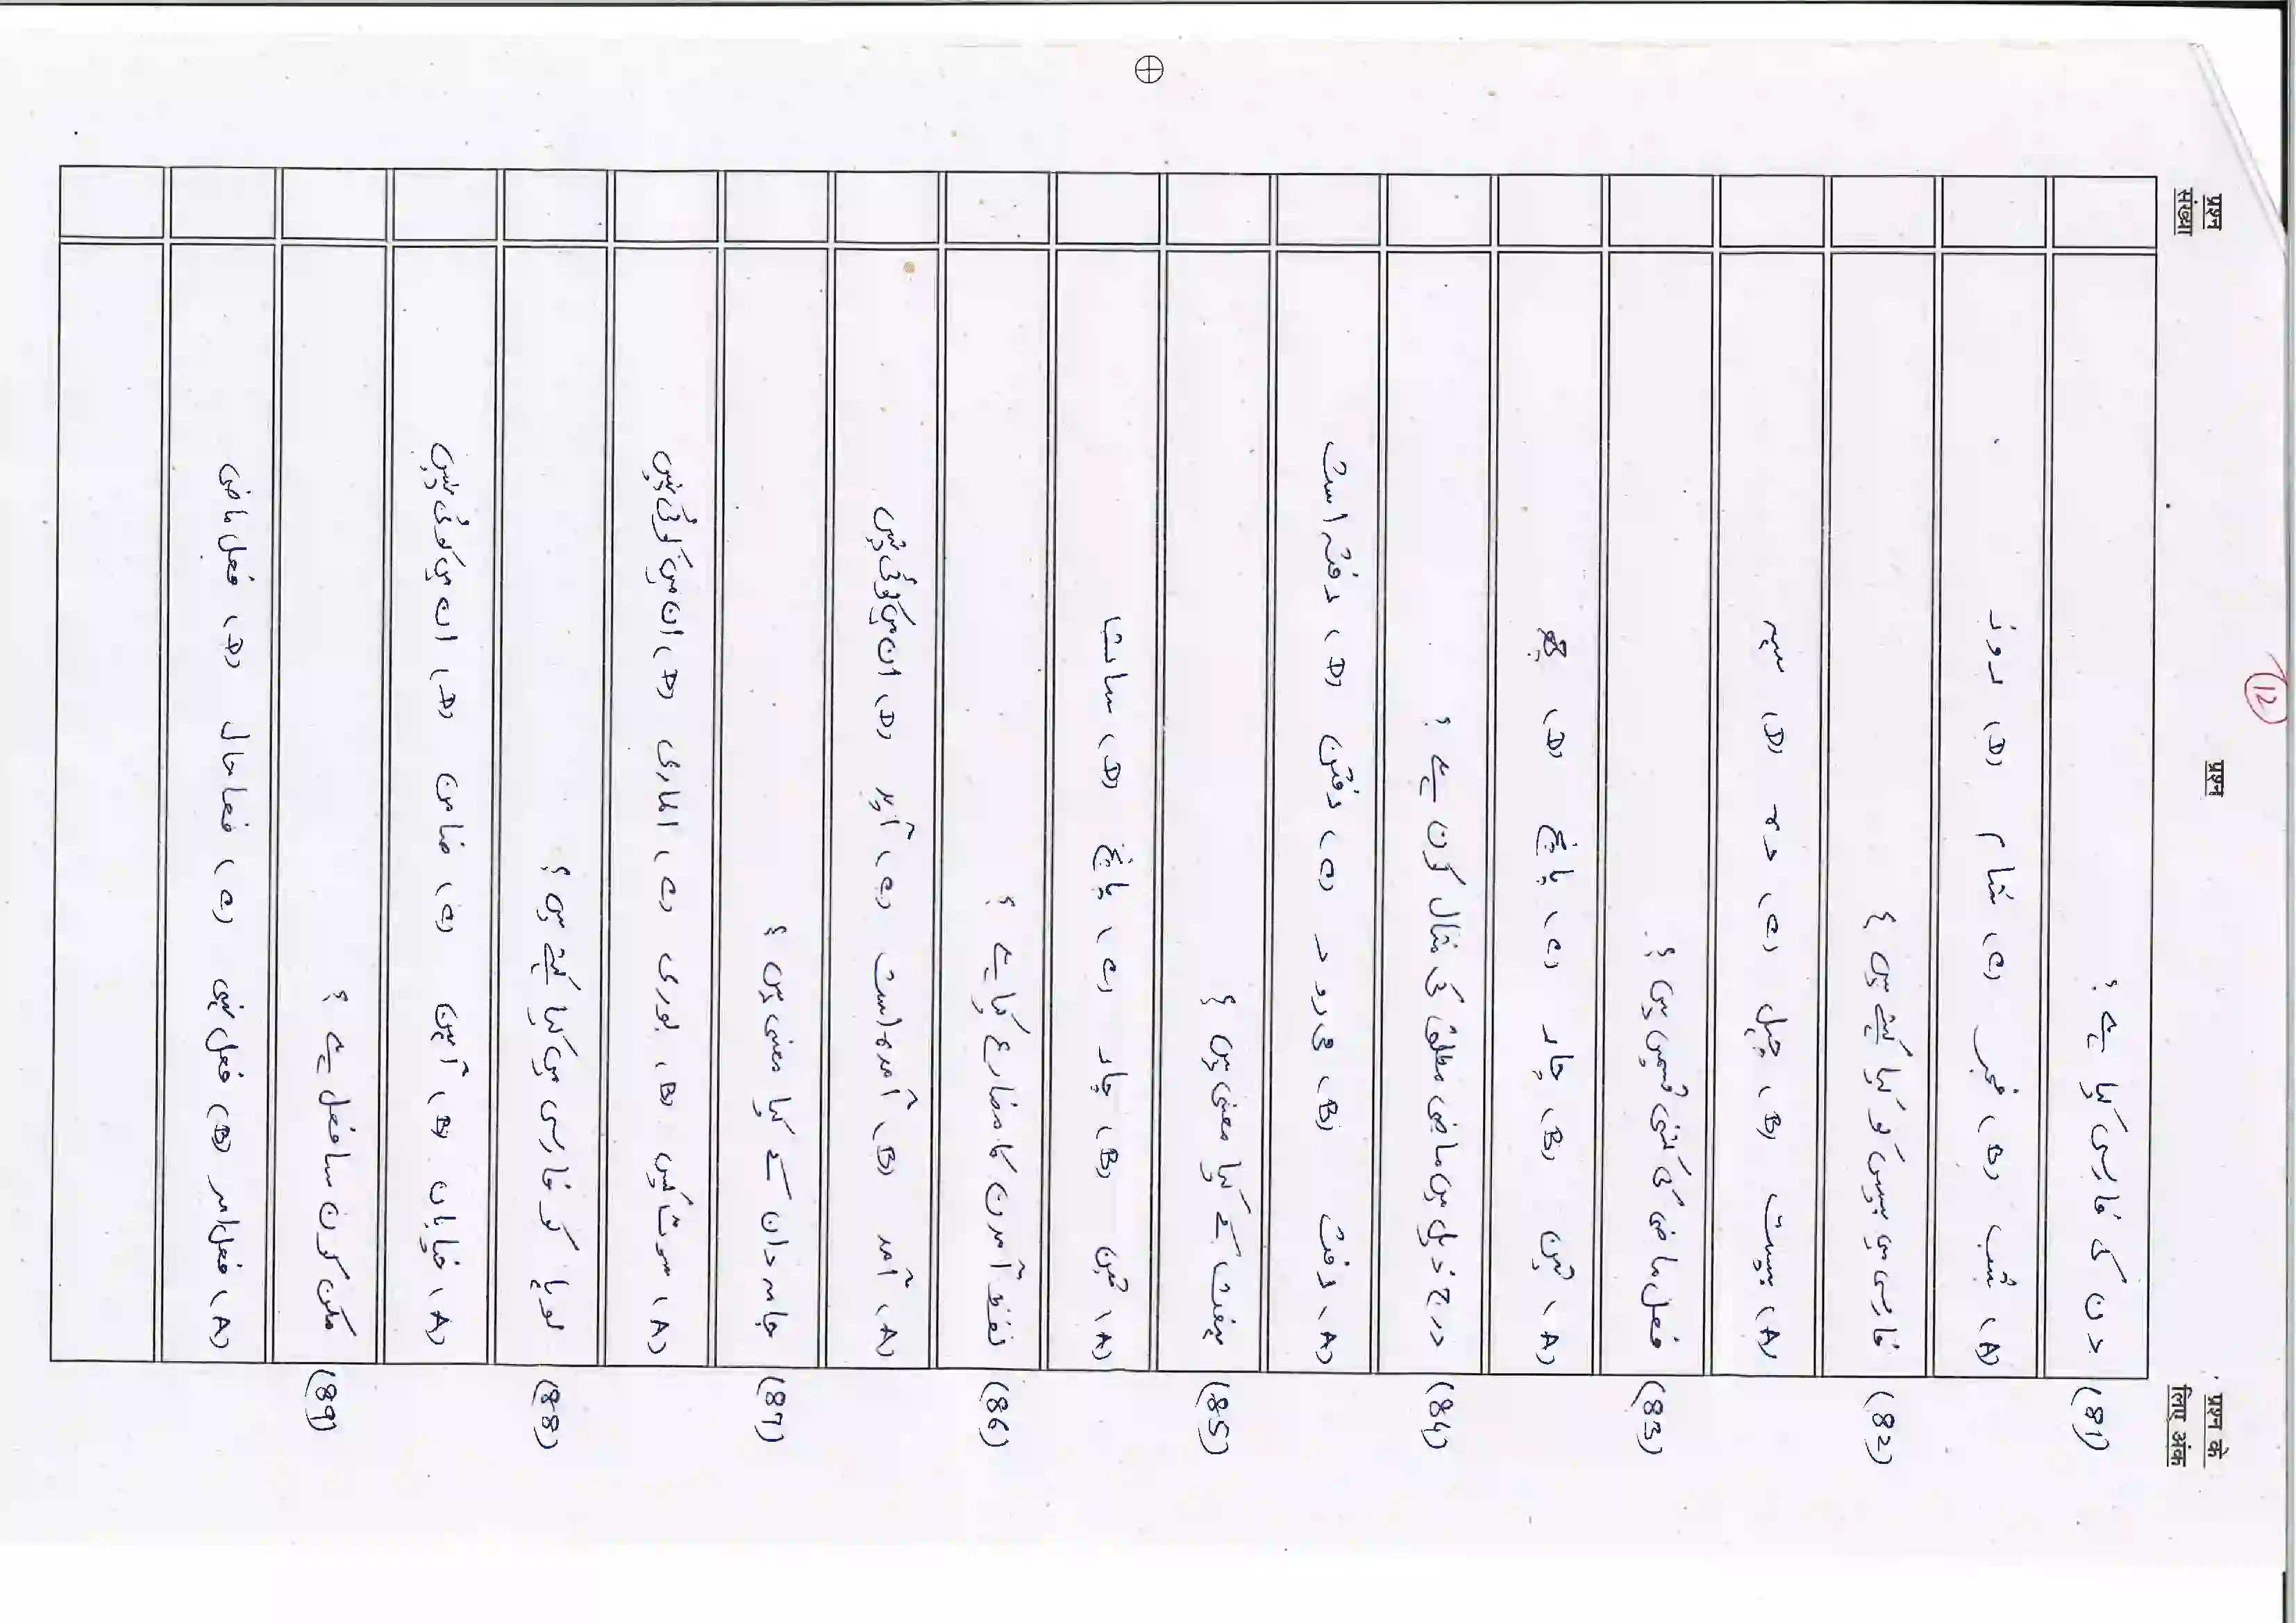 12
प्रश्न संख्या
प्रश्न
प्रश्न के लिए अंक
(81) دن کی فارسی کیا ہے ؟
(A) شب (B) فجر (C) شام (D) روز
(82) فارسی میں بیس کو کیا کہتے ہیں ؟
(A) بیست (B) چہل (C) دہ (D) سیہ
(83) فعل ماضی کی کتنی قسمیں ہیں ؟
(A) تین (B) چار (C) پانچ (D) چھ
(84) درج ذیل میں ماضی مطلق کی مثال کون ہے ؟
(A) رفت (B) می رود (C) رفتن (D) رفتہ است
(85) ہفت کے کیا معنی ہیں ؟
(A) تین (B) چار (C) پانچ (D) سات
(86) لفظ آمدن کا مضارع کیا ہے ؟
(A) آمد (B) آمدہ است (C) آید (D) ان میں کوئی نہیں
(87) جامہ دان کے کیا معنی ہیں ؟
(A) سوٹ کیس (B) بوری (C) الماری (D) ان میں کوئی نہیں
(88) لوہا کو فارسی میں کیا کہتے ہیں ؟
(A) خیابان (B) آہن (C) ضامن (D) ان میں کوئی نہیں
(89) مکن کون سا فعل ہے ؟
(A) فعل امر (B) فعل نہی (C) فعل حال (D) فعل ماضی